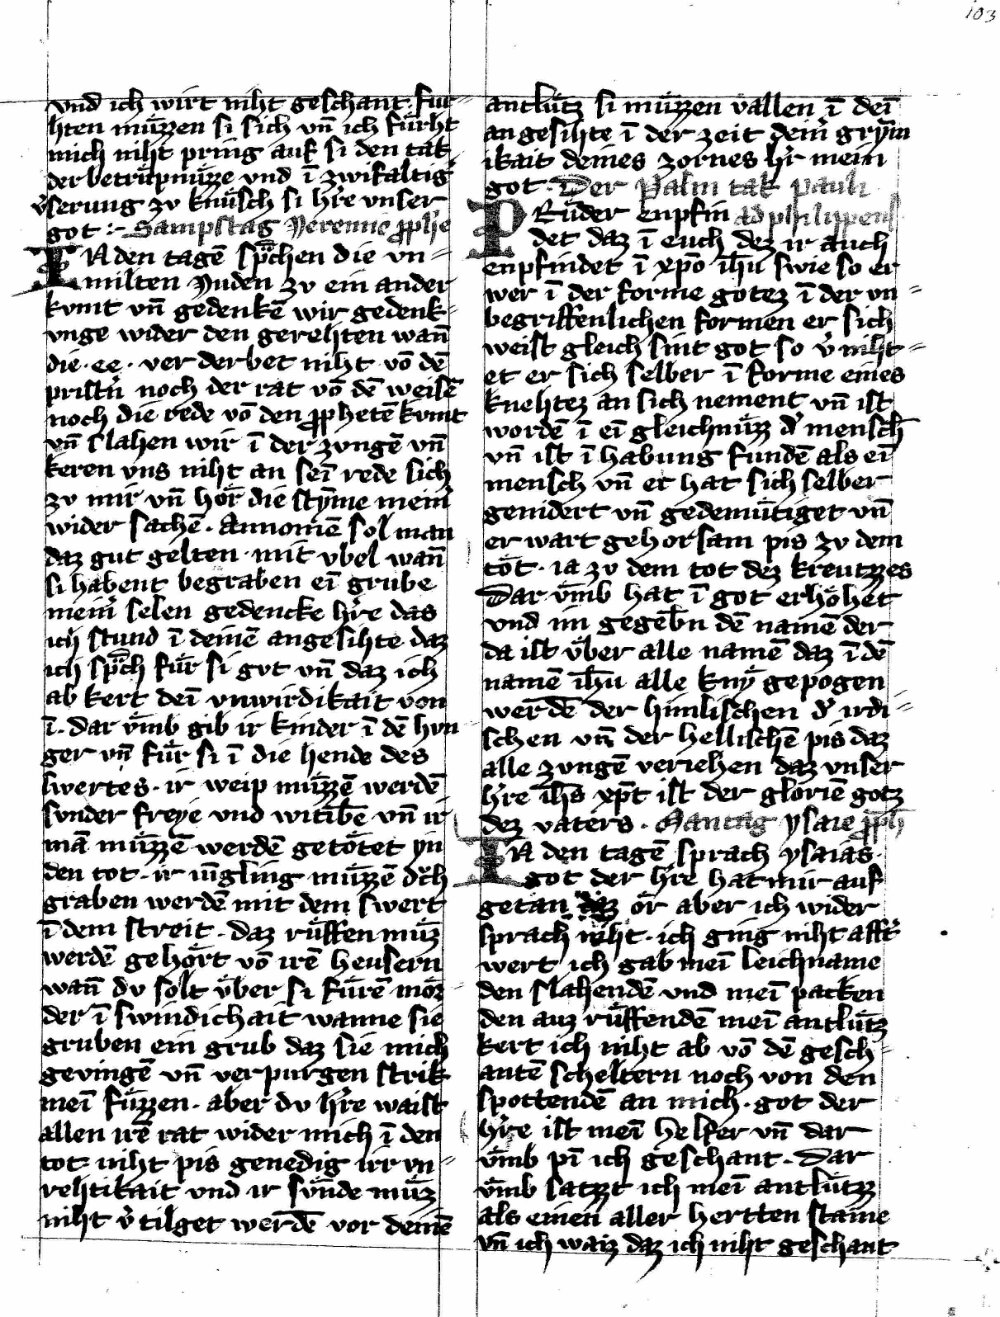 103
vnd ich wirt niht geschant. fur
hten muͤzzen si sich vn̄ ich fuͤrht
mich niht pring auf si den tak
der betruͤpnuͤzze vnd ī zwifaltig̾
v̾serung zv knuͤsch si hr̄e vnser
got :~ Sampstag Jeremie ꝓph̄e
IN den tagē sp̄chen die vn=
milten Juden zv ein ander
kvmt vn̄ gedenkē wir gedenk=
vnge wider den gerehten wan̄
die · ee · ver derbet niht vō dē
pristn̾ noch der rat vō dē weisē
noch die rede vō den ꝓphetē kvmt
vn̄ slahen wir ī der zvngē vn̄
keren vns niht an sei͞ rede sich
zv mir vn̄ hōr die sty͞me mein̾
wider sachē · Annomē sol man
daz gut gelten · mit vbel wan̄
si habent begraben ei͞ grube
mein̾ selen gedencke hr̄e das
ich stund ī deinē angesihte daz
ich sp̄ch fuͤr si gvt vn̄ daz ich
ab kert dei͞ vnwirdikait von
ī · dar vm̄b gib ir kinder ī dē hvn
ger vn̄ fuͤr si ī die hende des
swertes · ir weip muͤzzē werdē
svnder freye vnd witibē vn̄ ir
mā muͤzzē werdē getoͤtet yn
den tot · ir iu͞gling muͤzzē dͬch
graben werdē mit dem swert
ī dem streit · daz ruͤffen muͤz
werdē gehoͤrt vō irē heusern
wan̄ dv solt vͤber si fuͤrē mor
der ī swindichait wanne sie
gruben ein grub daz sie mich
gevingē vn̄ verpurgen strik
mei͞ fuͤzzen · aber dv hr̄e waist
allen irē rat wider mich ī den
tot niht pis genedig irr vn=
rehtikait vnd ir suͤnde muͤz
niht v̾tilget werdē vor deinē
antluͤtz si muͤzzen vallen ī dei͞
angesihte ī der zeit dein̾ grym̄
ikait deines zornes hr̄ mein
got · Der Palm tak pauli
PRuͤder enpfin ad philippens̄
det daz ī euch dez ir auch
enpfindet ī xp̄o ih̄u swie so er
wer ī der forme gotez ī der vn=
begriffenlichen formen er sich
weist gleich sint got so v̾niht=
et er sich selber ī forme eines
knehtez an sich nement vn̄ ist
wordē ī ei͞ gleichnuͤzz d̾ mensch̄
vn̄ ist ī habung fundē als ei͞
mensch vn̄ er hat sich selber
genidert vn̄ gedemuͤtiget vn̄
er wart gehorsam pis zv dem
toͤt · ia zv dem tot dez kreutzzes
Dar vm̄b hat ī got erhoͤhet
vnd im gegebn̄ dē namē der
da ist vͤber alle namē daz ī dē
namē ih̄u alle knyͤ gepogen
werdē der himlischen d̾ irdi=
schen vn̄ der hellischē pis daz
alle zvngē veriehen daz vnser
hr̄e ih̄s xp̄t ist der gloriē gotz
dez vaters · Mantag ysaie ꝓph̄
IN den tagē sprach ysaias ·
got der hr̄e hat mir auf
getan daz oͤr aber ich wider
sprach niht · ich ging niht afft̾
wert ich gab mei͞ leichname
den slahendē vnd mei͞ packen
den auz ruͤffendē mei͞ antluͤtz
kert ich niht ab vō dē gesch=
antē scheltern noch von den
spottendē an mich · got der
hr̄e ist mei͞ helfer vn̄ dar
vm̄b pi͞ ich geschant · Dar
vm̄b satzt ich mei͞ antluͤtzz
als einen aller hertten staine
vn̄ ich waiz daz ich niht geschant